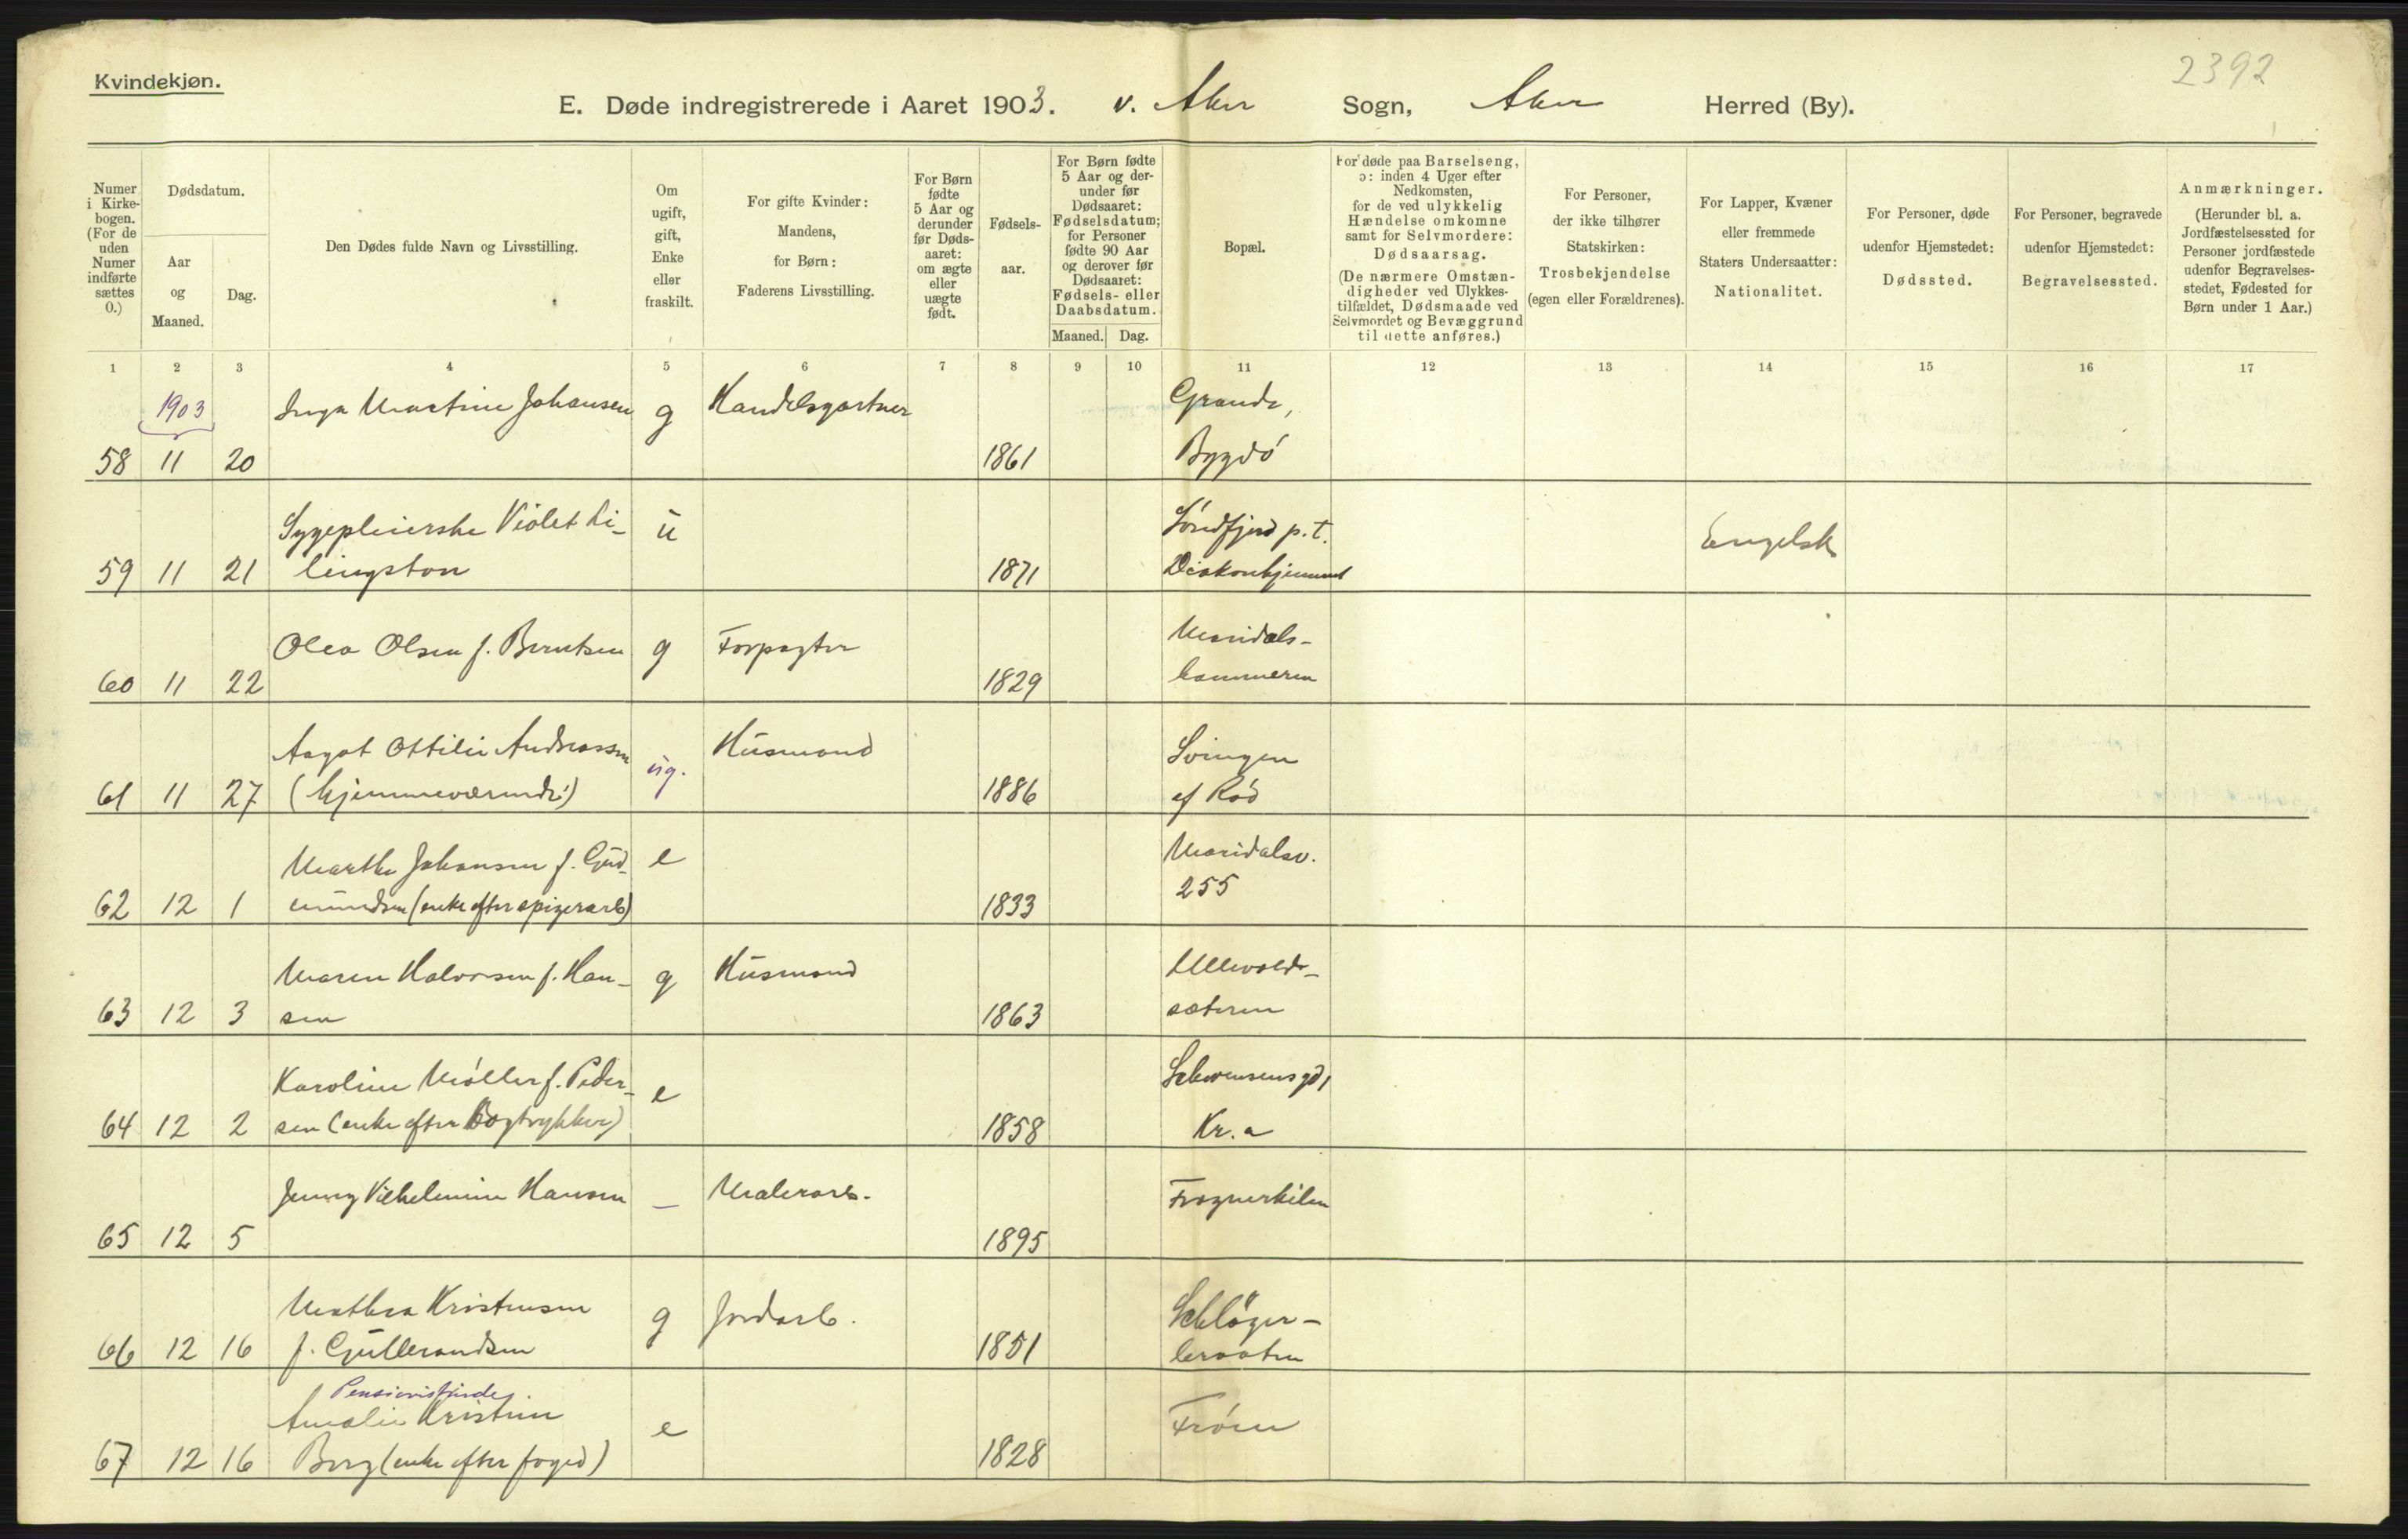 Kvindekjøn.
2392
E. Døde indregistrerede i Aaret 1903. v. Aker Sogn, Aker Herred (By).
Numer i Kirkebogen. (For de uden Numer indførte sættes 0.)
Dødsdatum.
Aar og Maaned.
Dag.
Den Dødes fulde Navn og Livsstilling.
Om ugift, gift, Enke eller fraskilt.
For gifte Kvinder: Mandens, for Børn: Faderens Livsstilling.
For Børn fødte 5 Aar og derunder før Dødsaaret: om ægte eller uægte født.
Fødselsaar.
For Børn fødte 5 Aar og derunder før Dødsaaret: Fødselsdatum; for Personer fødte 90 Aar og derover før Dødsaaret: Fødsels- eller Daabsdatum.
Maaned. Dag.
Bopæl.
For døde paa Barselseng, ɔ: inden 4 Uger efter Nedkomsten, for de ved ulykkelig Hændelse omkomne samt for Selvmordere: Dødsaarsag. (De nærmere Omstændigheder ved Ulykkestilfældet, Dødsmaade ved Selvmordet og Bevæggrund til dette anføres.)
For Personer, der ikke tilhører Statskirken: Trosbekjendelse (egen eller Forældrenes).
For Lapper, Kvæner eller fremmede Staters Undersaatter: Nationalitet.
For Personer, døde udenfor Hjemstedet: Dødssted.
For Personer, begravede udenfor Hjemstedet: Begravelsessted.
Anmærkninger. (Herunder bl. a. Jordfæstelsessted for Personer jordfæstede udenfor Begravelsesstedet, Fødested for Børn under 1 Aar.)
1 2 3 4 5 6 7 8 9 10 11 12 13 14 15 16 17
1903 Inga Martine Johansen g Handelsgartner Grande,
58 11 20 1861 Bygdó
Sygepleierske Violet Li- u Søndfjord p.t. Engelsk
59 11 21 lingston 1871 Diakonhjemmet
Olea Olsen f. Berntsen g Forpagter Maridals-
60 11 22 1829 hammeren
Aagot Ottilie Andreassen ug. Husmand Svingen
61 11 27 (hjemmeværende) 1886 af Rød
Marthe Johansen f. Gud- e Maridalsv.
62 12 1 mundsen (enke efter spigerarb) 1833 255
Maren Halvorsen f. Han- g Husmand Ullevolds-
63 12 3 sen 1863 sæteren
Karoline Møller f. Peder- e Schwensensgd,
64 12 2 sen (enke efter Bogtrykker) 1858 Kr.a
Jenny Vilhelmine Hansen — Malerarb. Frognerkilen
65 12 5 1895
Mathea Kristensen g Jordarb. Schlöger-
66 12 16 f. Gullerandsen 1851 leraaten
Pensionistinde.
Amalie Kristine e Frøen
67 12 16 Borg (enke efter foged) 1828